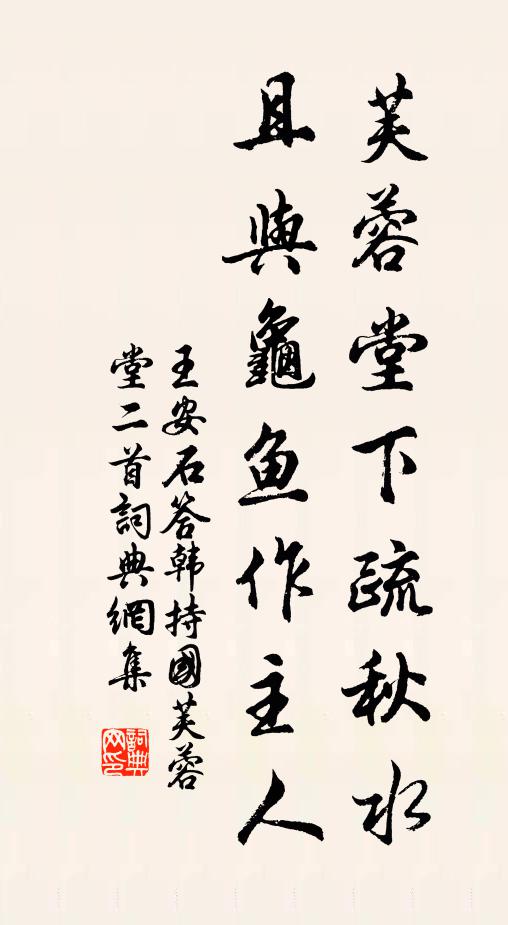 芙蓉堂下疏秋水
且與龜魚作主人
王安石答韩持國芙蓉
堂二首詞典網集
詞典
网印